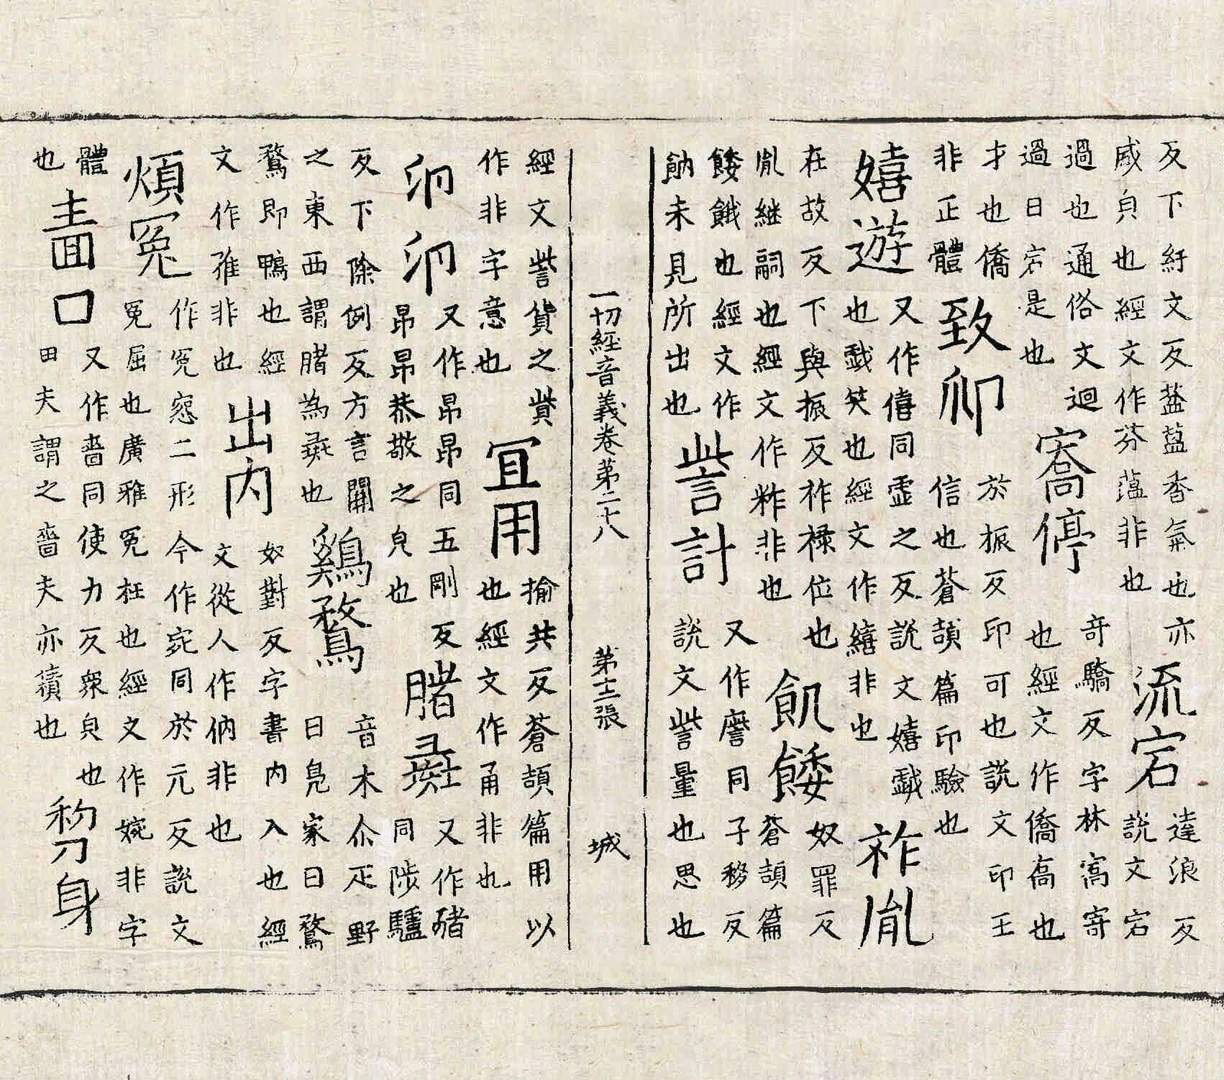 反下紆文反葐蒀香氣也亦盛皃也經文作芬蒀非也流宕達浪反說文宕
過也通俗文迴過曰宕是也喬停奇驕反字林寯寄也經文作僑高也
才也僑非正體致印於振反印可也說文印王信也蒼頡篇印驗也
嬉遊又作僖同虛之反說文嬉戲也戲笑也經文作繥非也祚胤
在故反下與振反祚祿位也胤継嗣也經文作粎非也飢餧奴罪反蒼頡篇
餧餓也經文作䬣未見所出也訾計又作䜅同子移反說文訾量也思也
一切經音義卷第二十八 第十三張 城
經文訾貲之貲作非字意也冝用揄共反蒼頡篇用以也經文作甬非也
卬卬又作昂昂同五剛反昂昂恭敬之皃也䐗彘又作豬同陟驢
反下除例反方言關之東西謂䐗為彘也鷄鶩音木尒疋野曰鳧家曰鶩
鶩即鴨也經文作䧹非也出内奴對反字書内入也經文從人作㐻非也
煩冤作冤㤪二形今作宛同於元反說文冤屈也廣雅冤枉也經文作婉非字
體也啬口又作嗇同使力反衆皃也田夫謂之嗇夫亦積也剺身